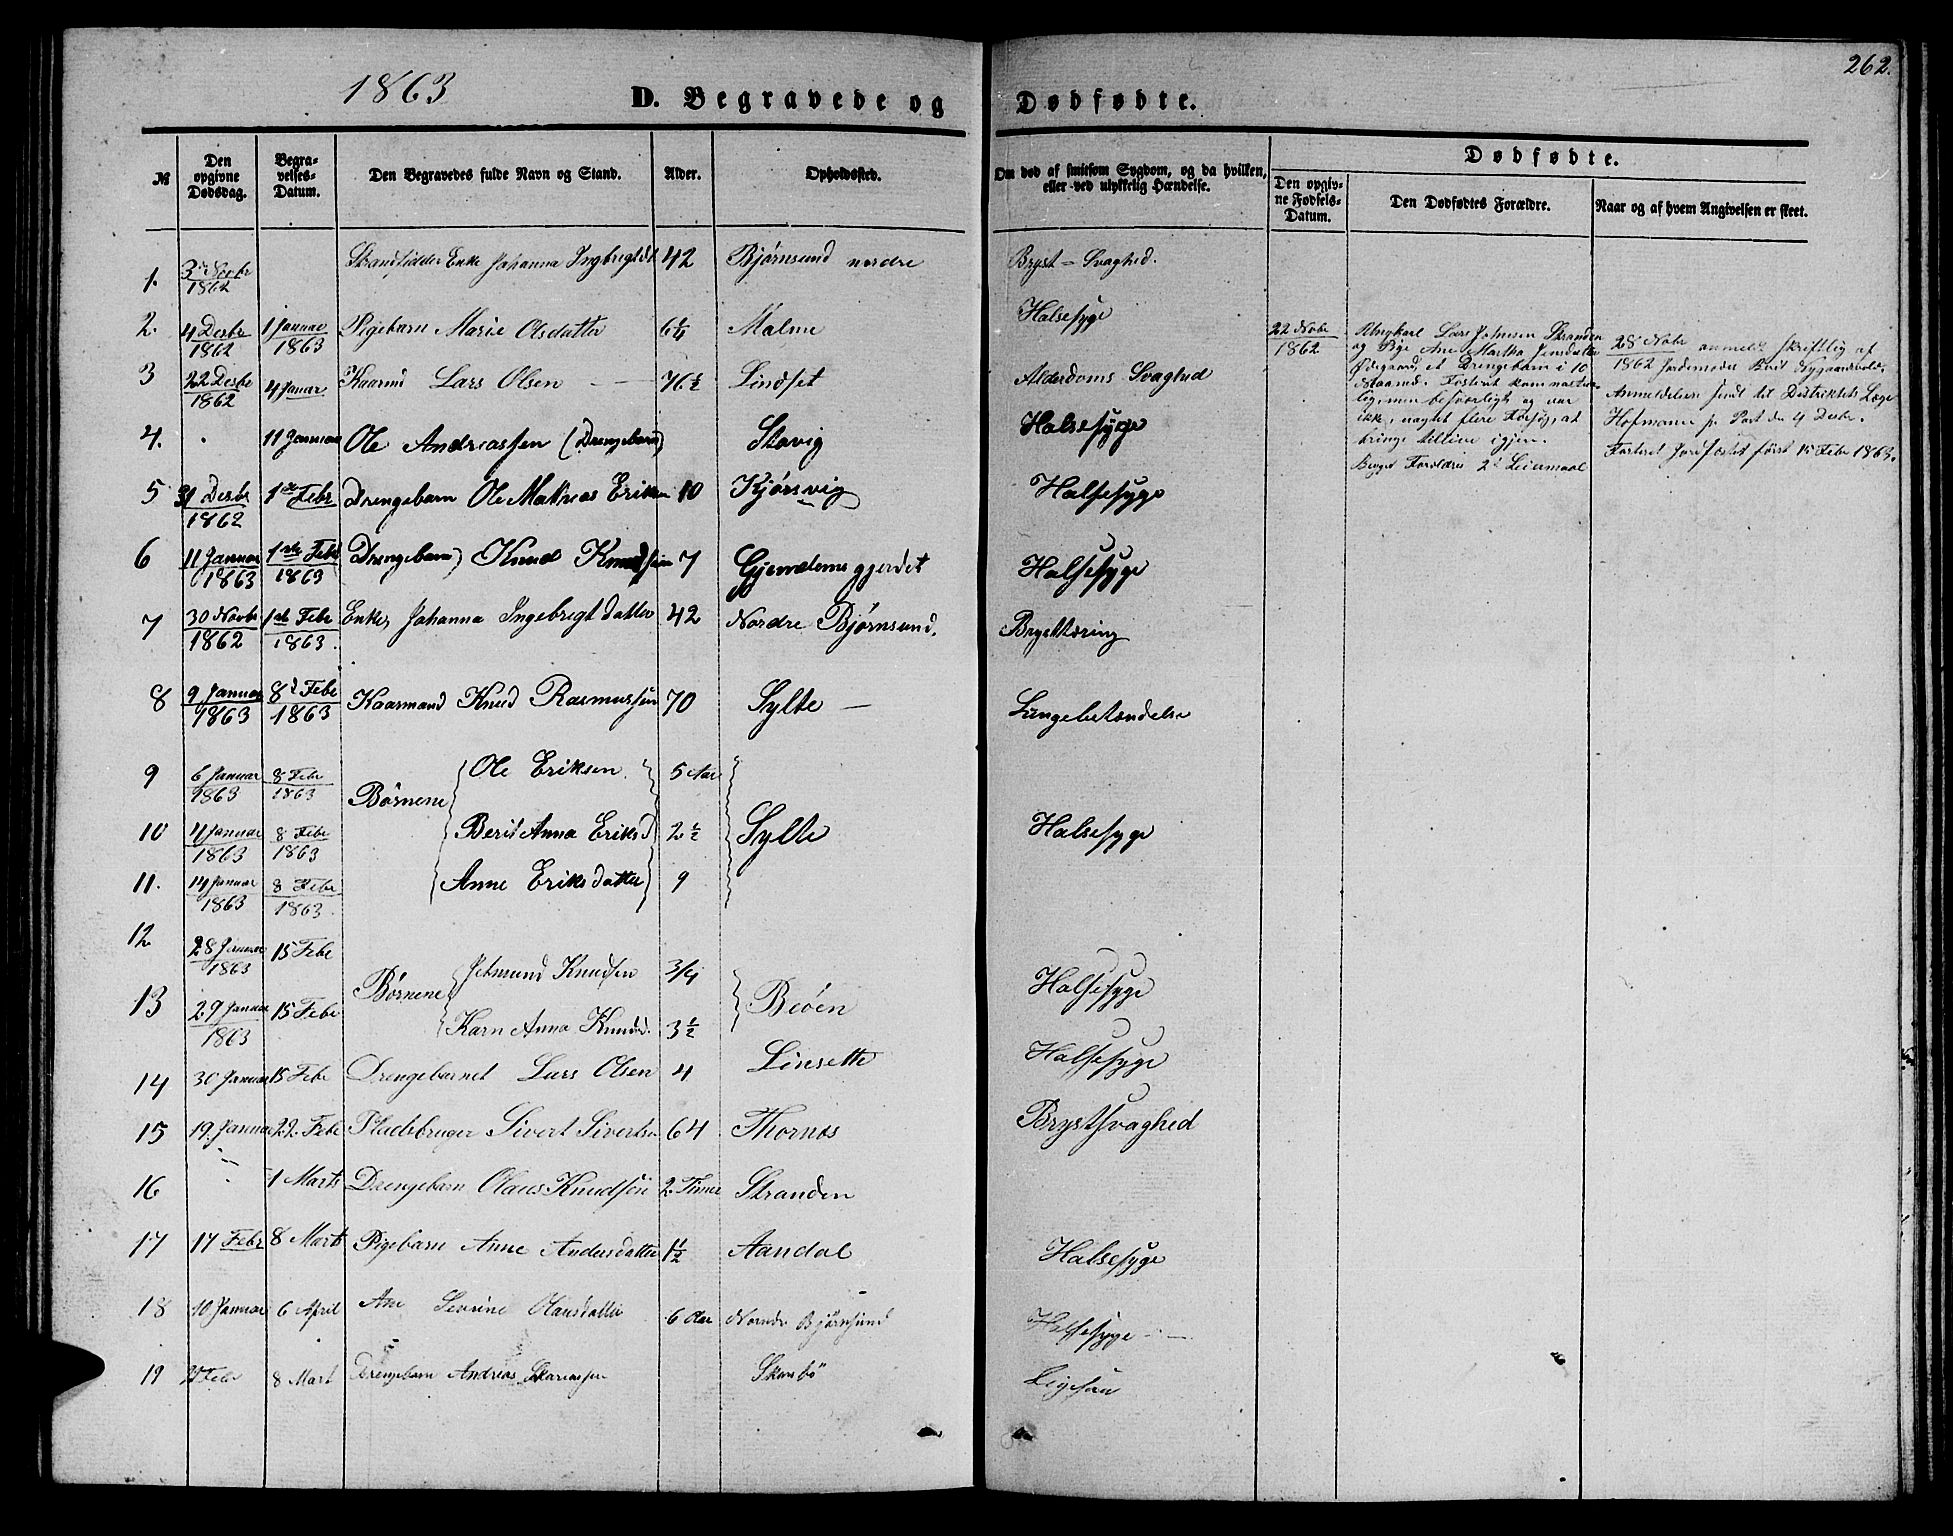 262.
1863 D. Begravede og Dødfødte.
№ Den opgivne Dødsdag. Begravelses-Datum. Den Begravedes fulde Navn og Stand. Alder. Opholdssted. Om død af smitsom Sygdom, og da hvilken, eller ved ulykkelig Hændelse. Dødfødte.
Den opgivne Fødsels-Datum. Den Dødfødtes Forældre. Naar og af hvem Angivelsen er skeet.
1. 1862 Enke Johanna Ingbrigtdt 42 Bjørnsund nordre Bryst-Svaghed.
2. 4 Desbr 1862 1 Januar 1863 Pigebarn Marie Olsdatter 6¼ Malme Halsesyge
3 22 Desbr 1862 4 Januar Kaarmd Lars Olsen — 76½ Lindset Alderdoms Svaghed
4. . 11 Januar Ole Andreassen (Drengebarn) Stavig Halsesyge
5 31 Desbr 1862 1ste Febr Drengebarn Ole Mathias Eriksen 10 Kjørsvig Halsesyge
6 11 Januar 1863 1ste Febr 1863 Drengebarn Knud Knudsen 7 Gjendemsgjerdet Halsesyge
7 30 Novbr 1862 1ste Febr 1863. Enke, Johanna Ingebrigtdatter 42 Nordre Bjørnsund. Brysttæring
8 9 Januar 1863 8d Febr 1863 Kaarmand Knud Rasmussen 70 Sylte — Lungebetændelse
9 6 Januar 1863 8 Febr 1863 Børnene Ole Eriksen 5 Aar
10 4 Januar 1863 8 Febr 1863 Berit Anna Eriksd 2½ Sylte Halsesyge
11. 14 Januar 1863 8 Febr 1863. Anne Eriksdatter 9
12. 28 Januar 1863 15 Febr Børnene Jetmund Knudsen 3/4
13 29 Januar 1863 15 Febr Karn Anna Knudsd. 3½ Beöen Halsesyge
14 30 Januar 15 Febr Drengebarnet Lars Olsen 4 Linsette Halsesyge
15 19. Januar 22. Febr Pladsbruger Sivert Sivertsen 64 Thornos Brystsvaghed
16 1 Marts Drengebarn Olaus Knudsen 2 Timer Stranden
17 17 Febr 8 Marts Pigebarn Anne Andersdatter 1½ Aandal Halsesyge
18 10 Januar 6 April Ane Sevrine Olausdatter 6 Aar Nordr Bjørnsund Halsesyge —
19 Febr 8 Mart Drengebarn Andreas Skansbö
22 Novbr 1862
Ungkarl Lars Johnsen Stranden
og Pige Ane Martha Jensdatter
Ødegaard, et Drengebarn i 10
Maaned. Fosteret kom
lig, men besværligt og var
ikke, uagtet flere Forsøg, at
bringe tillive igjen.
Begge Forældres 2d Leiermaal
28 Novbr anmeldt skriftlig af
1862 Jordemoder Berit
Anmeldelsen sendt til Distriktets Læge
Hofmann pr Post den 4 Desbr.
Fosteret Jordfæstet først 15 Febr 1863.